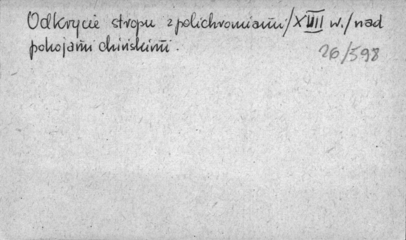 Odkrycie stropu z polichromiami /XVIII w./ nad
pokojami chińskimi.
26/598